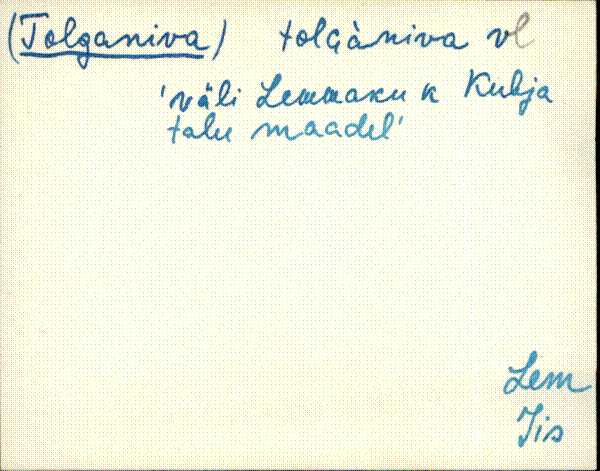 (Tolganiva) tolgàniva vl
'väli Lemmaku k Kubja
talu maadel'
Lem
Iis